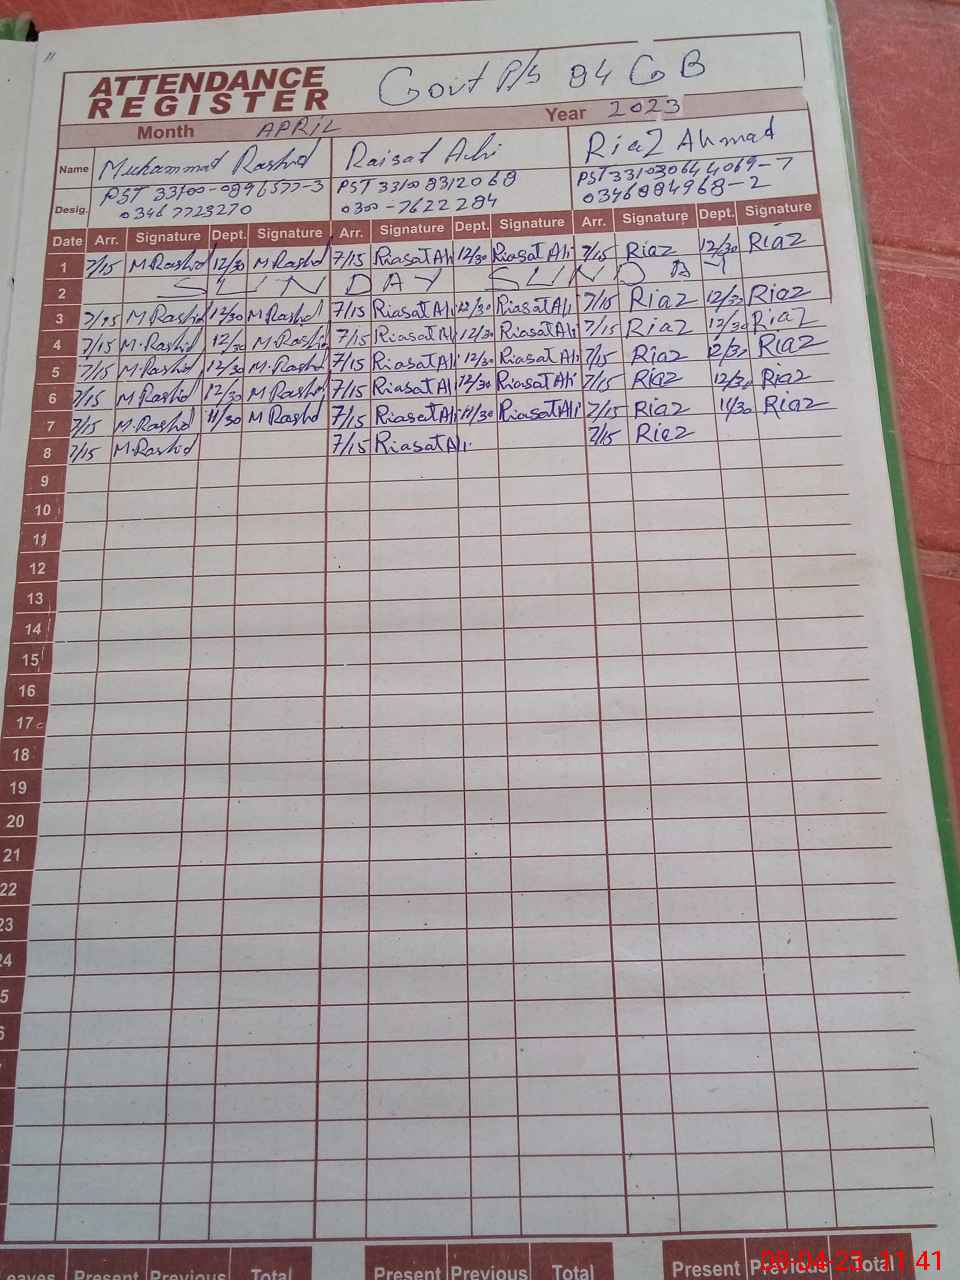 ATTENDANCE
REGISTER
Govt P/S 84 GB
Month APRIL Year 2023
Name Muhammad Rashid Raisat Ali Riaz Ahmad
Desig. PST 33100-0896577-3 PST 33100 8312068 PST 33103064 4069-7
03467723270 0300-7622284 0346884968-2
Date Arr. Signature Dept. Signature Arr. Signature Dept. Signature Arr. Signature Dept. Signature
1 7/15 M Rashid 12/30 M Rashid 7/15 Riasat Ali 12/30 Riasat Ali 7/15 Riaz 12/30 Riaz
2 SUNDAY SUNDAY
3 7/15 M Rashid 12/30 M Rashid 7/15 Riasat Ali 12/30 Riasat Ali 7/15 Riaz 12/30 Riaz
4 7/15 M Rashid 12/30 M Rashid 7/15 Riasat Ali 12/30 Riasat Ali 7/15 Riaz 12/30 Riaz
5 7/15 M Rashid 12/30 M Rashid 7/15 Riasat Ali 12/30 Riasat Ali 7/15 Riaz 12/30 Riaz
6 7/15 M Rashid 12/30 M Rashid 7/15 Riasat Ali 12/30 Riasat Ali 7/15 Riaz 12/30 Riaz
7 7/15 M Rashid 11/30 M Rashid 7/15 Riasat Ali 11/30 Riasat Ali 7/15 Riaz 11/30 Riaz
8 7/15 M Rashid 7/15 Riasat Ali 7/15 Riaz
9
10
11
12
13
14
15
16
17
18
19
20
21
22
23
24
Present Previous Total Present Previous Total Present Previous Total
08-04-23 11:41